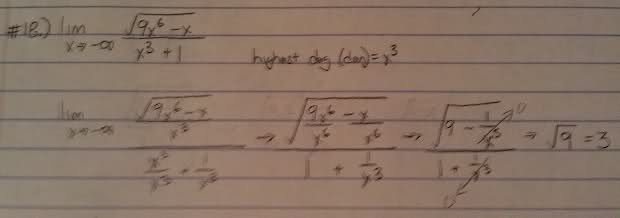 #18.) lim x→-∞ √(9x⁶ - x) / (x³ + 1)
highest deg (den) = x³
lim x→-∞ (√(9x⁶ - x) / x³) / (x³/x³ + 1/x³) → √(9x⁶/x⁶ - x/x⁶) / (1 + 1/x³) → √(9 - 1/x⁵ 0) / (1 + 1/x³ 0) → √9 = 3